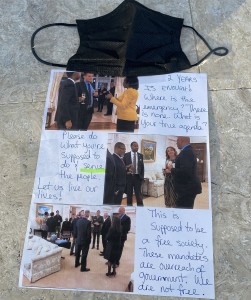 2 YEARS
IS ENOUGH!
Where is the
emergency? There
is none. What is
your true agenda?
Please do
what you're
supposed to
do & serve
the people.
Let us live our
lives!
This is
supposed to be
a free society.
These mandates
are overreach of
government. We
are not free.